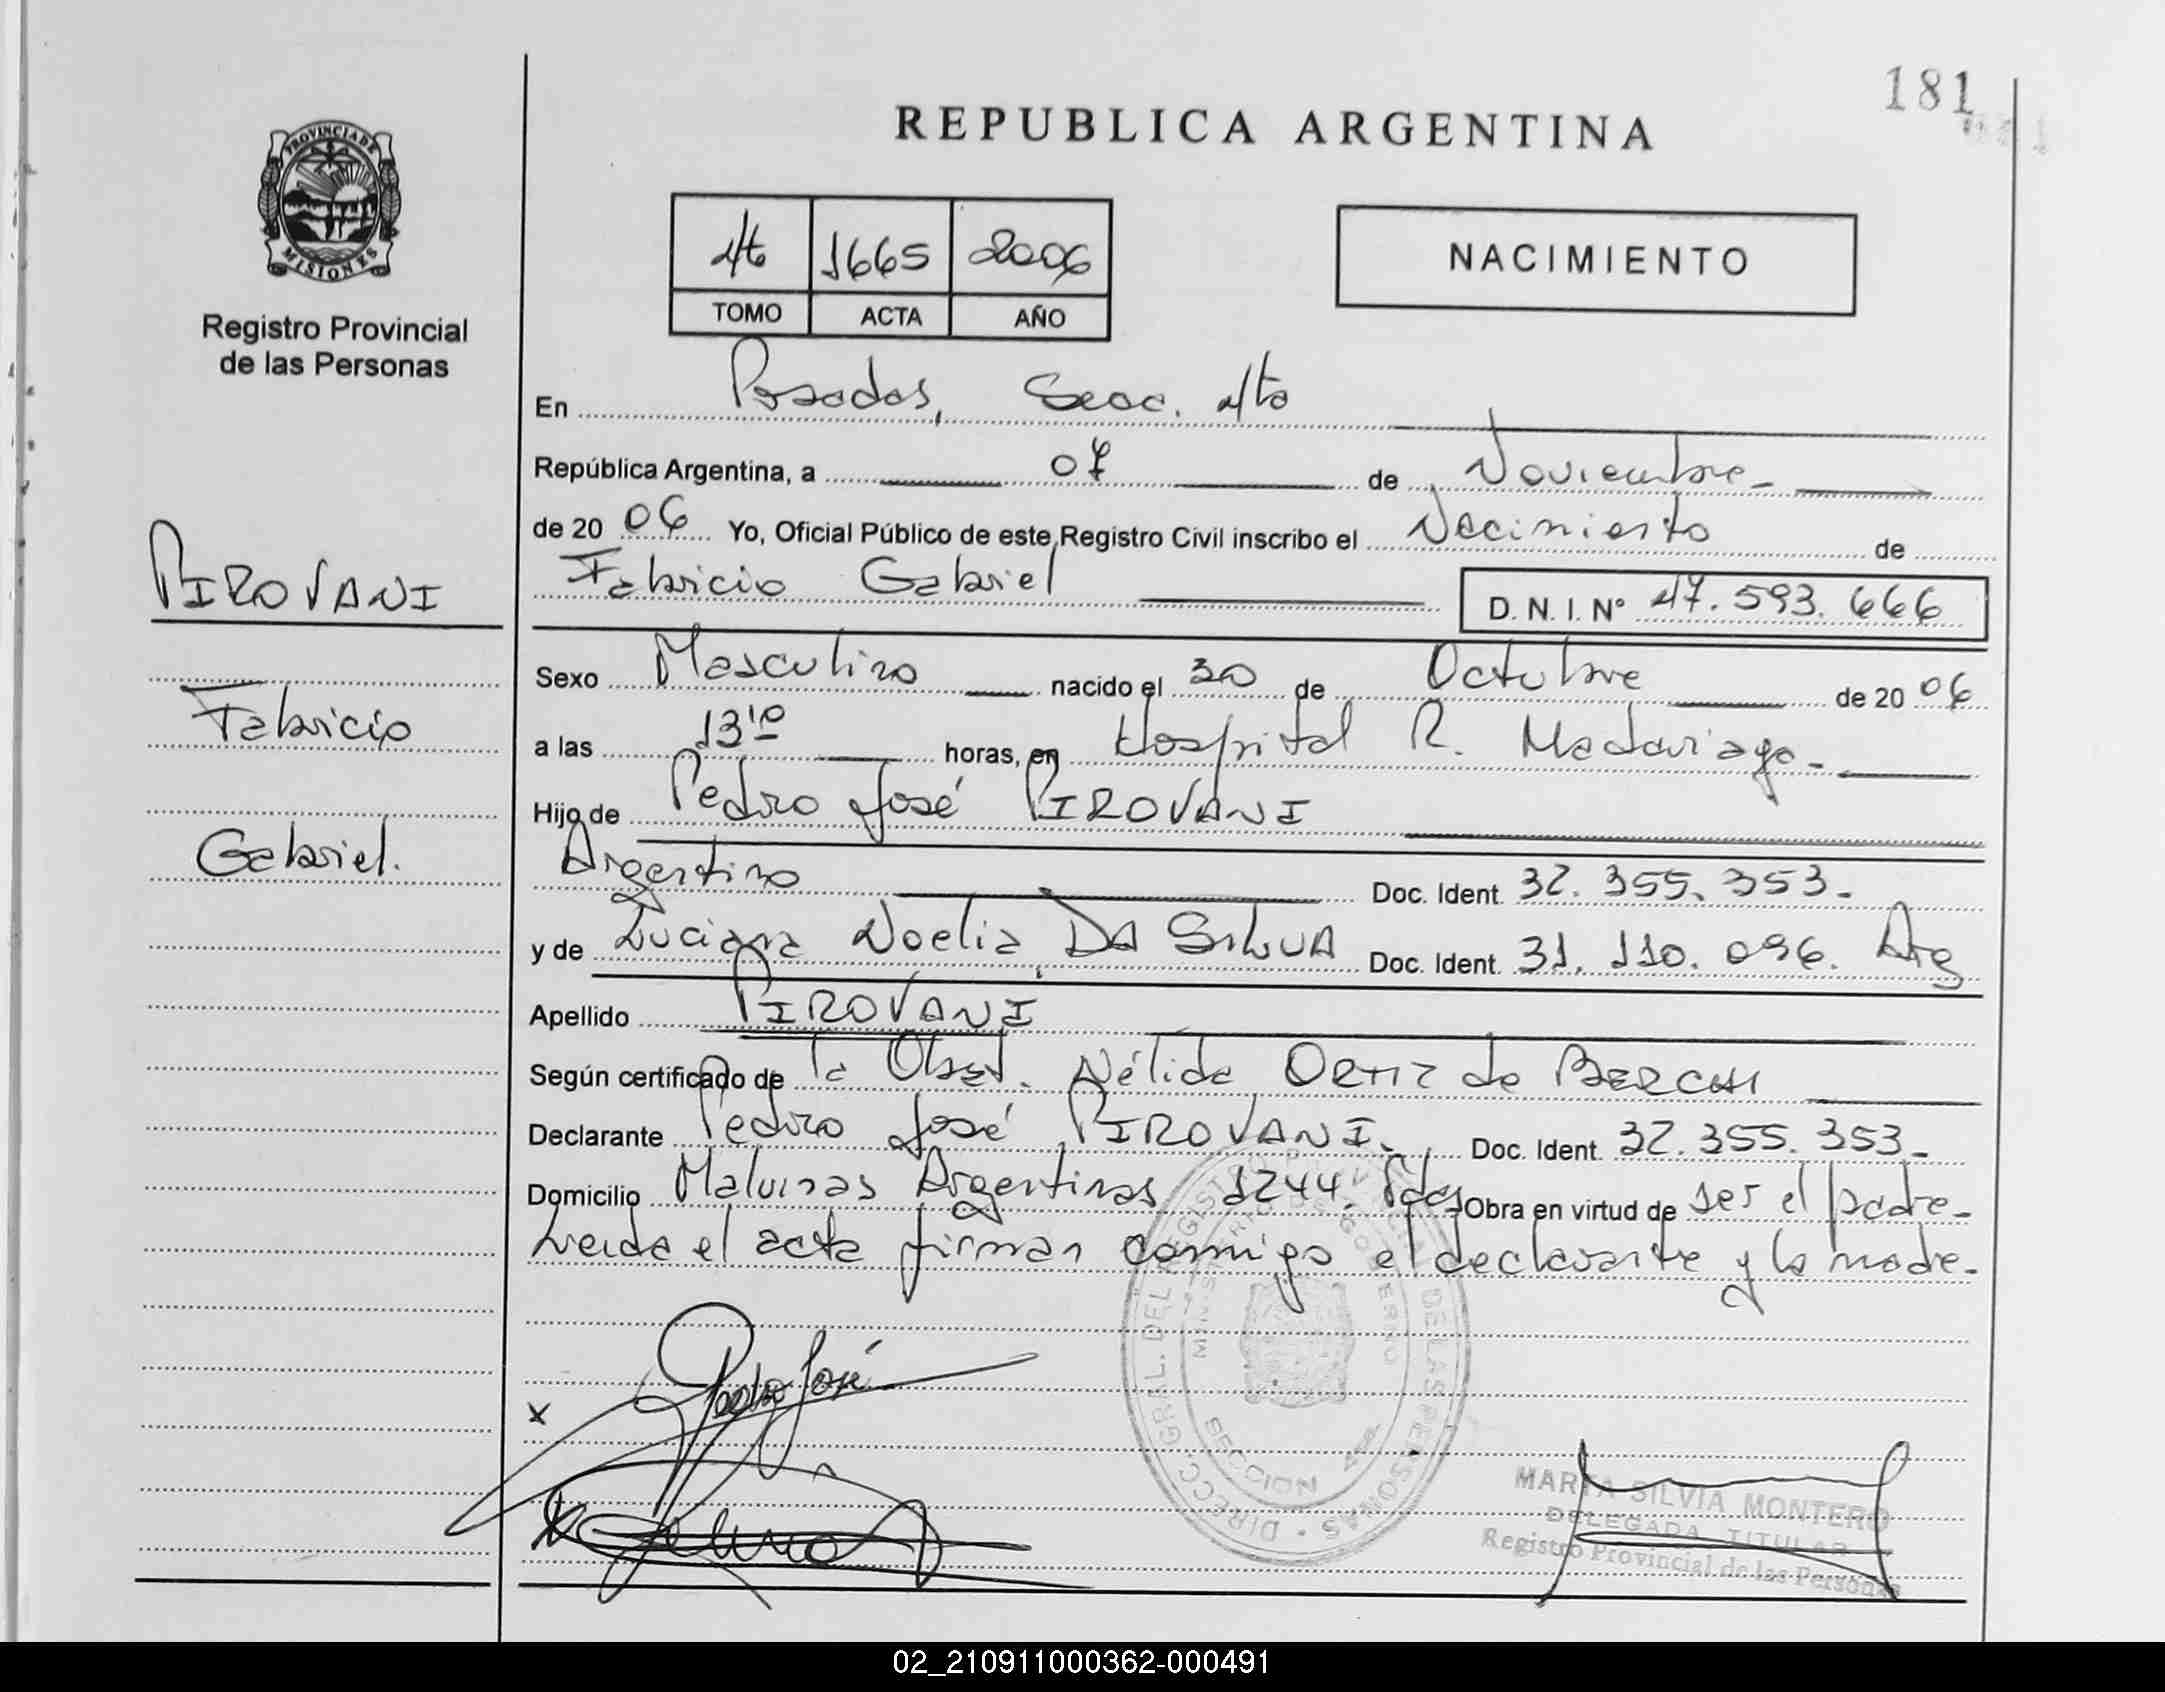 181
REPUBLICA ARGENTINA
PROVINCIA DE
MISIONES
Registro Provincial
de las Personas
4to 1665 2006
TOMO ACTA AÑO
NACIMIENTO
En Posadas, Secc. 4ta
República Argentina, a 07 de Noviembre
de 20 06 Yo, Oficial Público de este Registro Civil inscribo el Nacimiento de
PIROVANI
Fabricio Gabriel D. N. I. Nº 47.593.666
Sexo Masculino nacido el 30 de Octubre de 20 06
Fabricio
a las 13'10 horas, en Hospital R. Madariaga
Hijo de Pedro José PIROVANI
Gabriel.
Argentino Doc. Ident. 32.355.353.
y de Luciana Noelia DA SILVA Doc. Ident. 31.110.096. Arg
Apellido PIROVANI
Según certificado de la Obst. Nélida ORTIZ de
Declarante Pedro José PIROVANI. Doc. Ident. 32.355.353.
Domicilio Malvinas Argentinas 1244. Pdas Obra en virtud de ser el padre
Leída el acta firman conmigo el declarante y la madre.
DIRECC. GRAL. DEL REGISTRO PROVINCIAL DE LAS PERSONAS
MINISTERIO DE GOBIERNO
SECCION 4ta
Pedro José
x
MARTA SILVIA MONTERO
DELEGADA TITULAR
Registro Provincial de las Personas
02_210911000362-000491